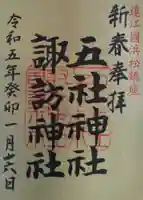 遠江國浜松鎮座
新春奉拝
五社神社
諏訪神社
令和五年癸卯一月十六日